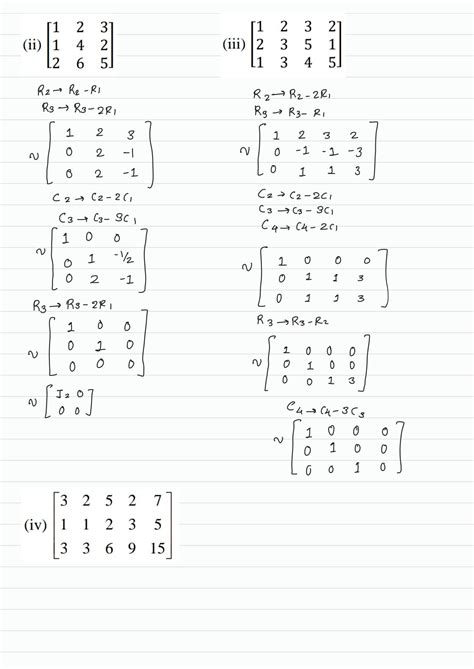 (ii) [1 2 3
1 4 2
2 6 5]
R2 → R2 - R1
R3 → R3 - 2R1
~ [1 2 3
0 2 -1
0 2 -1]
C2 → C2 - 2C1
C3 → C3 - 3C1
~ [1 0 0
0 1 -1/2
0 2 -1]
R3 → R3 - 2R1
~ [1 0 0
0 1 0
0 0 0]
~ [I2 0
0 0]
(iii) [1 2 3 2
2 3 5 1
1 3 4 5]
R2 → R2 - 2R1
R3 → R3 - R1
~ [1 2 3 2
0 -1 -1 -3
0 1 1 3]
C2 → C2 - 2C1
C3 → C3 - 3C1
C4 → C4 - 2C1
~ [1 0 0 0
0 1 1 3
0 1 1 3]
R3 → R3 - R2
~ [1 0 0 0
0 1 0 0
0 0 1 3]
C4 → C4 - 3C3
~ [1 0 0 0
0 1 0 0
0 0 1 0]
(iv) [3 2 5 2 7
1 1 2 3 5
3 3 6 9 15]